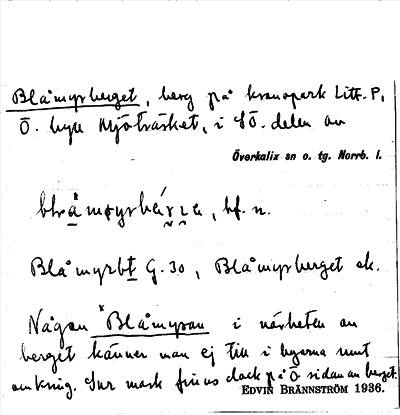 Blåmyrberget, berg på kronopark Litt. P,
Ö. byn Mjöträsket, i SÖ. delen av
Överkalix sn o. tg. Norrb. l.
bf. n.
Blåmyrbt G. 30, Blåmyrberget ek.
Någon *Blåmyran i närheten av
berget känner man ej till i byarna runt
omkring. Sur mark finns dock på Ö sidan av berget.
EDVIN BRÄNNSTRÖM 1936.